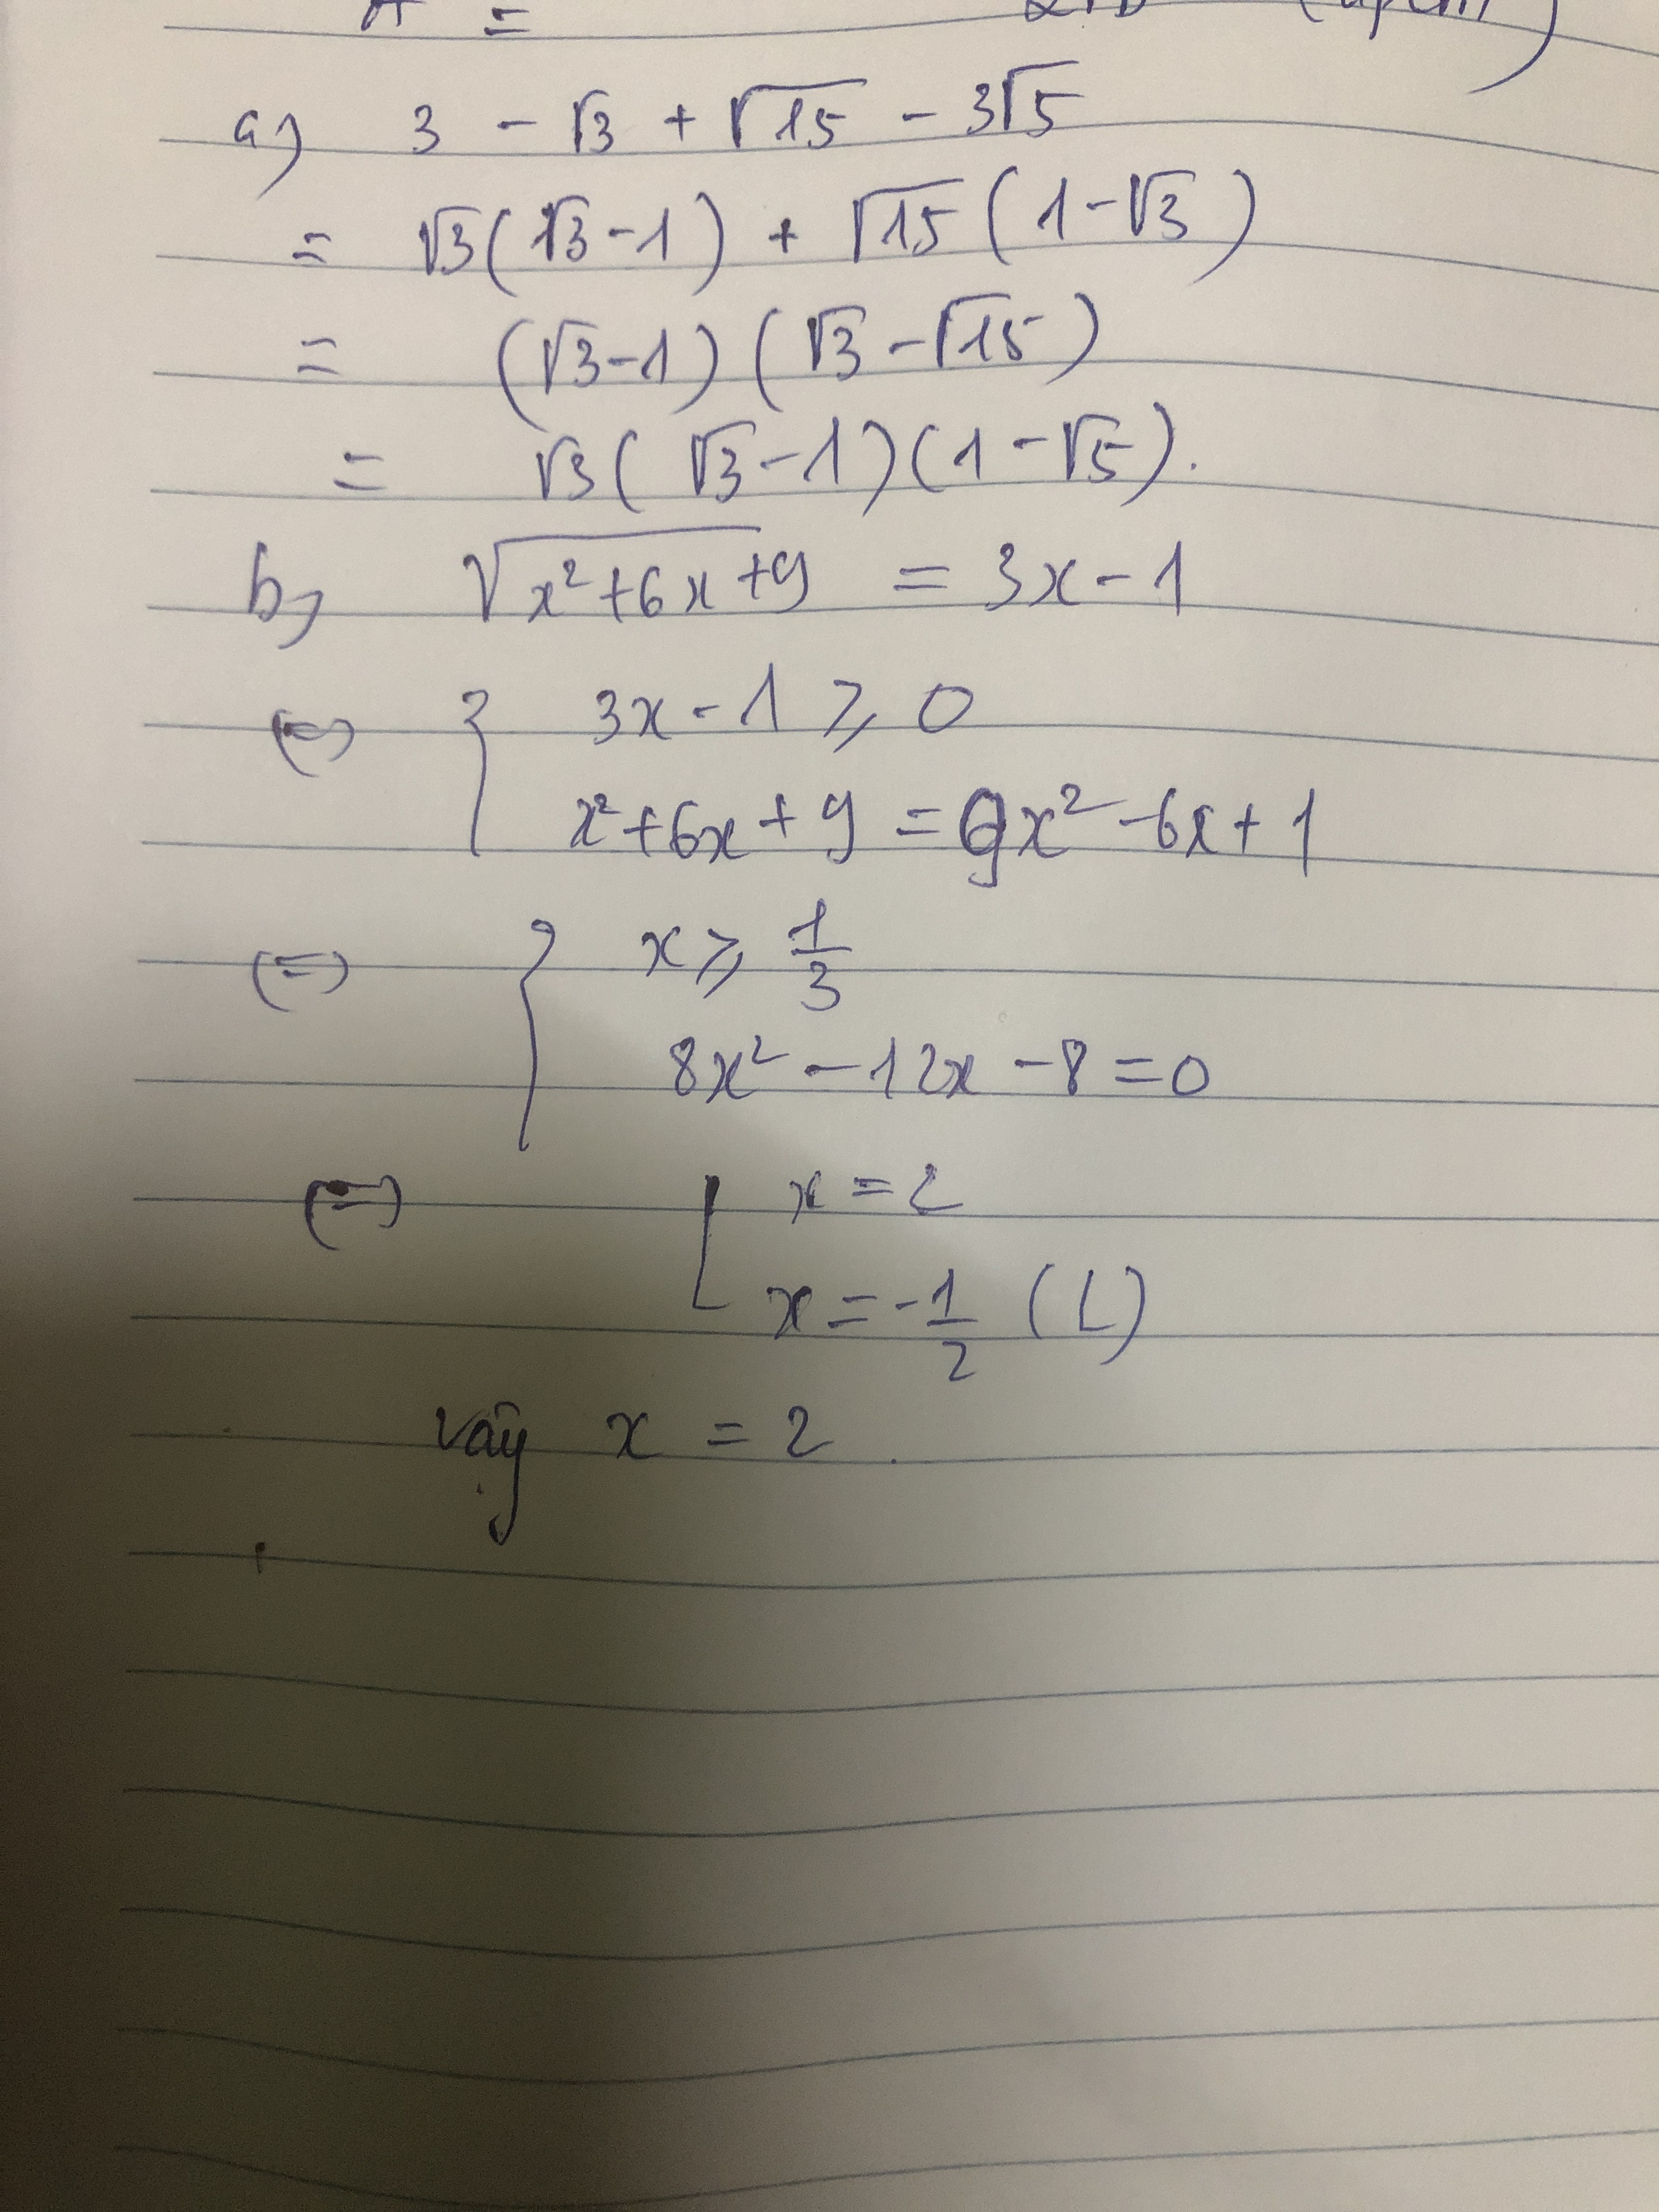 A =
a) 3 - √3 + √15 - 3√5
= √3(√3-1) + √15(1-√3)
= (√3-1)(√3-√15)
= √3(√3-1)(1-√5).
b) √x²+6x+9 = 3x-1
(=) { 3x-1 ⩾ 0
x²+6x+9 = 9x²-6x+1
(=) { x ⩾ 1/3
8x² - 12x - 8 = 0
(=) [ x = 2
x = -1/2 (L)
vậy x = 2.